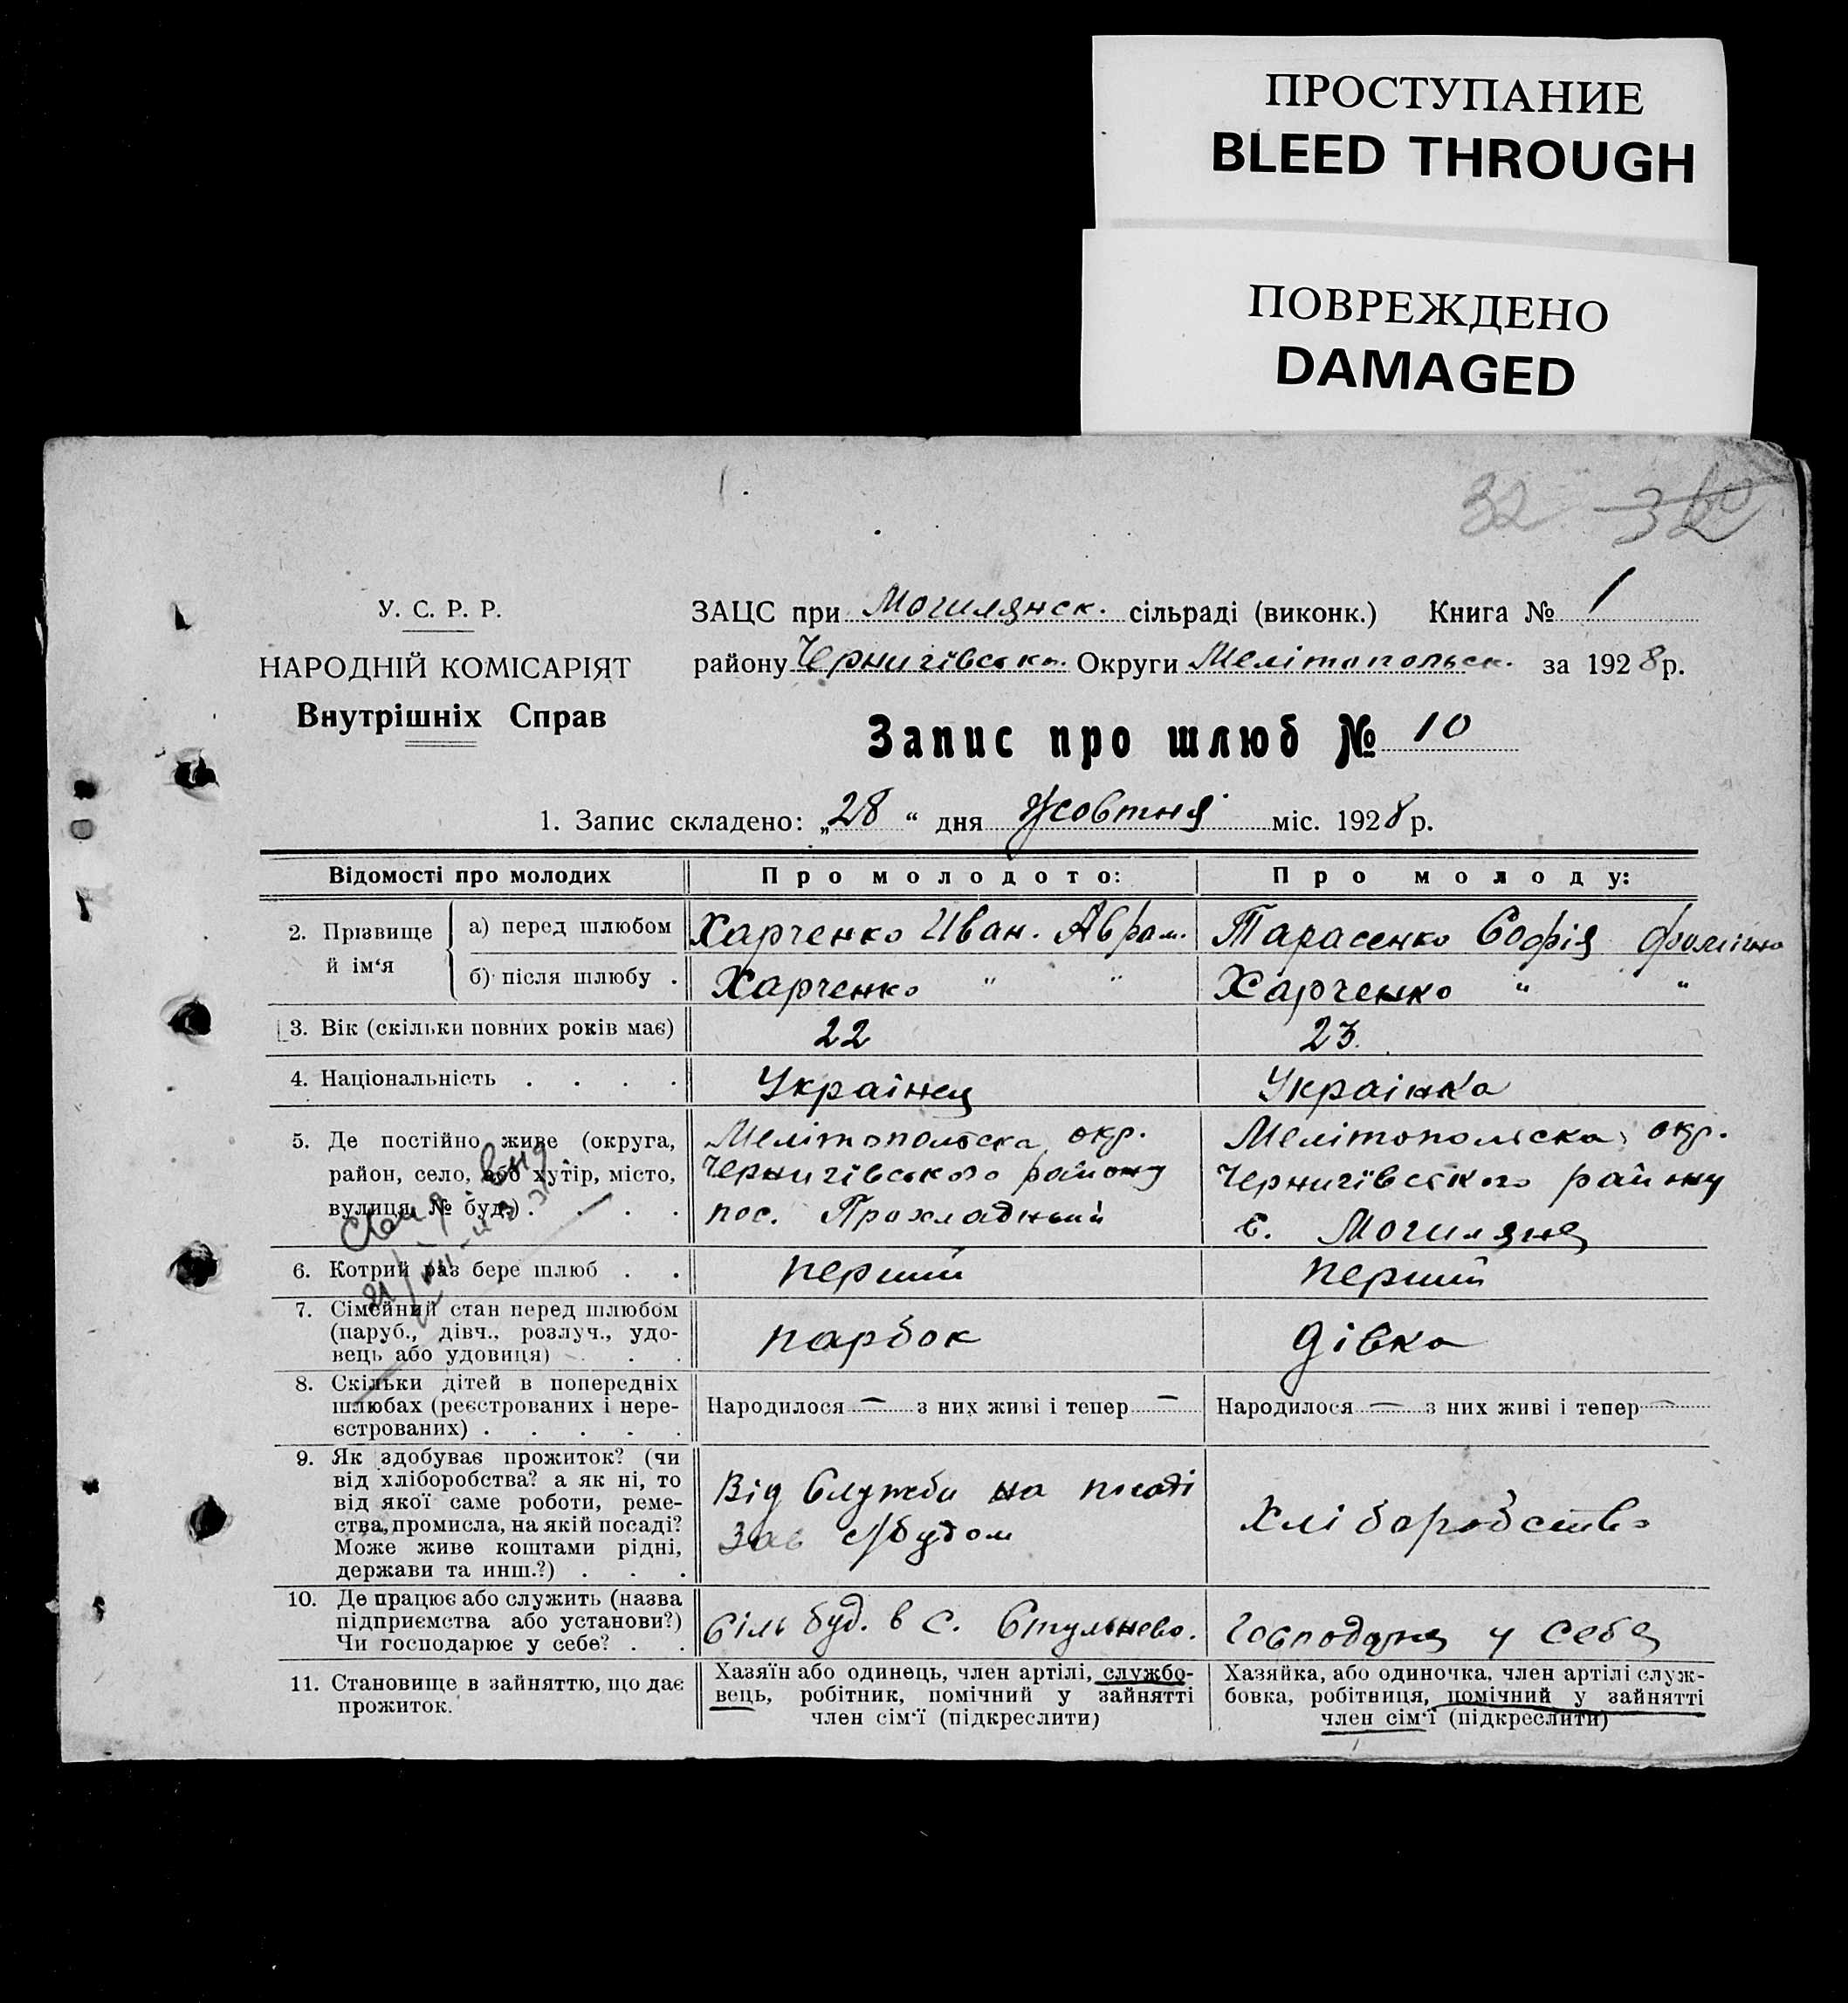 ПРОСТУПАНИЕ
BLEED THROUGH
ПОВРЕЖДЕНО
DAMAGED
32
У. С. Р. Р.
НАРОДНІЙ КОМІСАРІЯТ
Внутрішніх Справ
ЗАЦС при Могилянск. сільраді (виконк.) Книга № 1
району Чернигівсько. Округи Мелітопольск. за 1928 р.
Запис про шлюб № 10
1. Запис складено: „28“ дня Жовтня міс. 1928 р.
Відомості про молодих
Про молодого:
Про молоду:
2. Прізвище й ім‘я
а) перед шлюбом
Харченко Иван. Аврам.
Тарасенко Софія
б) після шлюбу .
Харченко " "
Харченко " "
3. Вік (скільки повних років має)
22
23.
4. Національність . . . .
Українец
Українка
5. Де постійно живе (округа,
район, село, або хутір, місто,
вулиця, № буд.) . . . .
Мелітопольска окр.
Чернигівського району
пос. Прохладный
Мелітопольска окр.
Чернигівського району
с. Могиляне
6. Котрий раз бере шлюб . .
перший
перший
7. Сімейний стан перед шлюбом
(паруб., дівч., розлуч., удо-
вець або удовиця) . . .
парбок
дівка
8. Скільки дітей в попередніх
шлюбах (реєстрованих і нере-
єстрованих) . . . . .
Народилося — з них живі і тепер —
Народилося — з них живі і тепер —
9. Як здобуває прожиток? (чи
від хліборобства? а як ні, то
від якої саме роботи, реме-
ства, промисла, на якій посаді?
Може живе коштами рідні,
держави та инш.?) . . .
Від Служби на посаді
Зав с/будом
Хліборобство
10. Де працює або служить (назва
підприємства або установи?)
Чи господарює у себе? . .
Сіль буд. в с. Стульнево.
у себе
11. Становище в зайняттю, що дає
прожиток.
Хазяїн або одинець, член артілі, службо-
вець, робітник, помічний у зайнятті
член сім‘ї (підкреслити)
Хазяйка, або одиночка, член артілі служ-
бовка, робітниця, помічний у зайнятті
член сім‘ї (підкреслити)